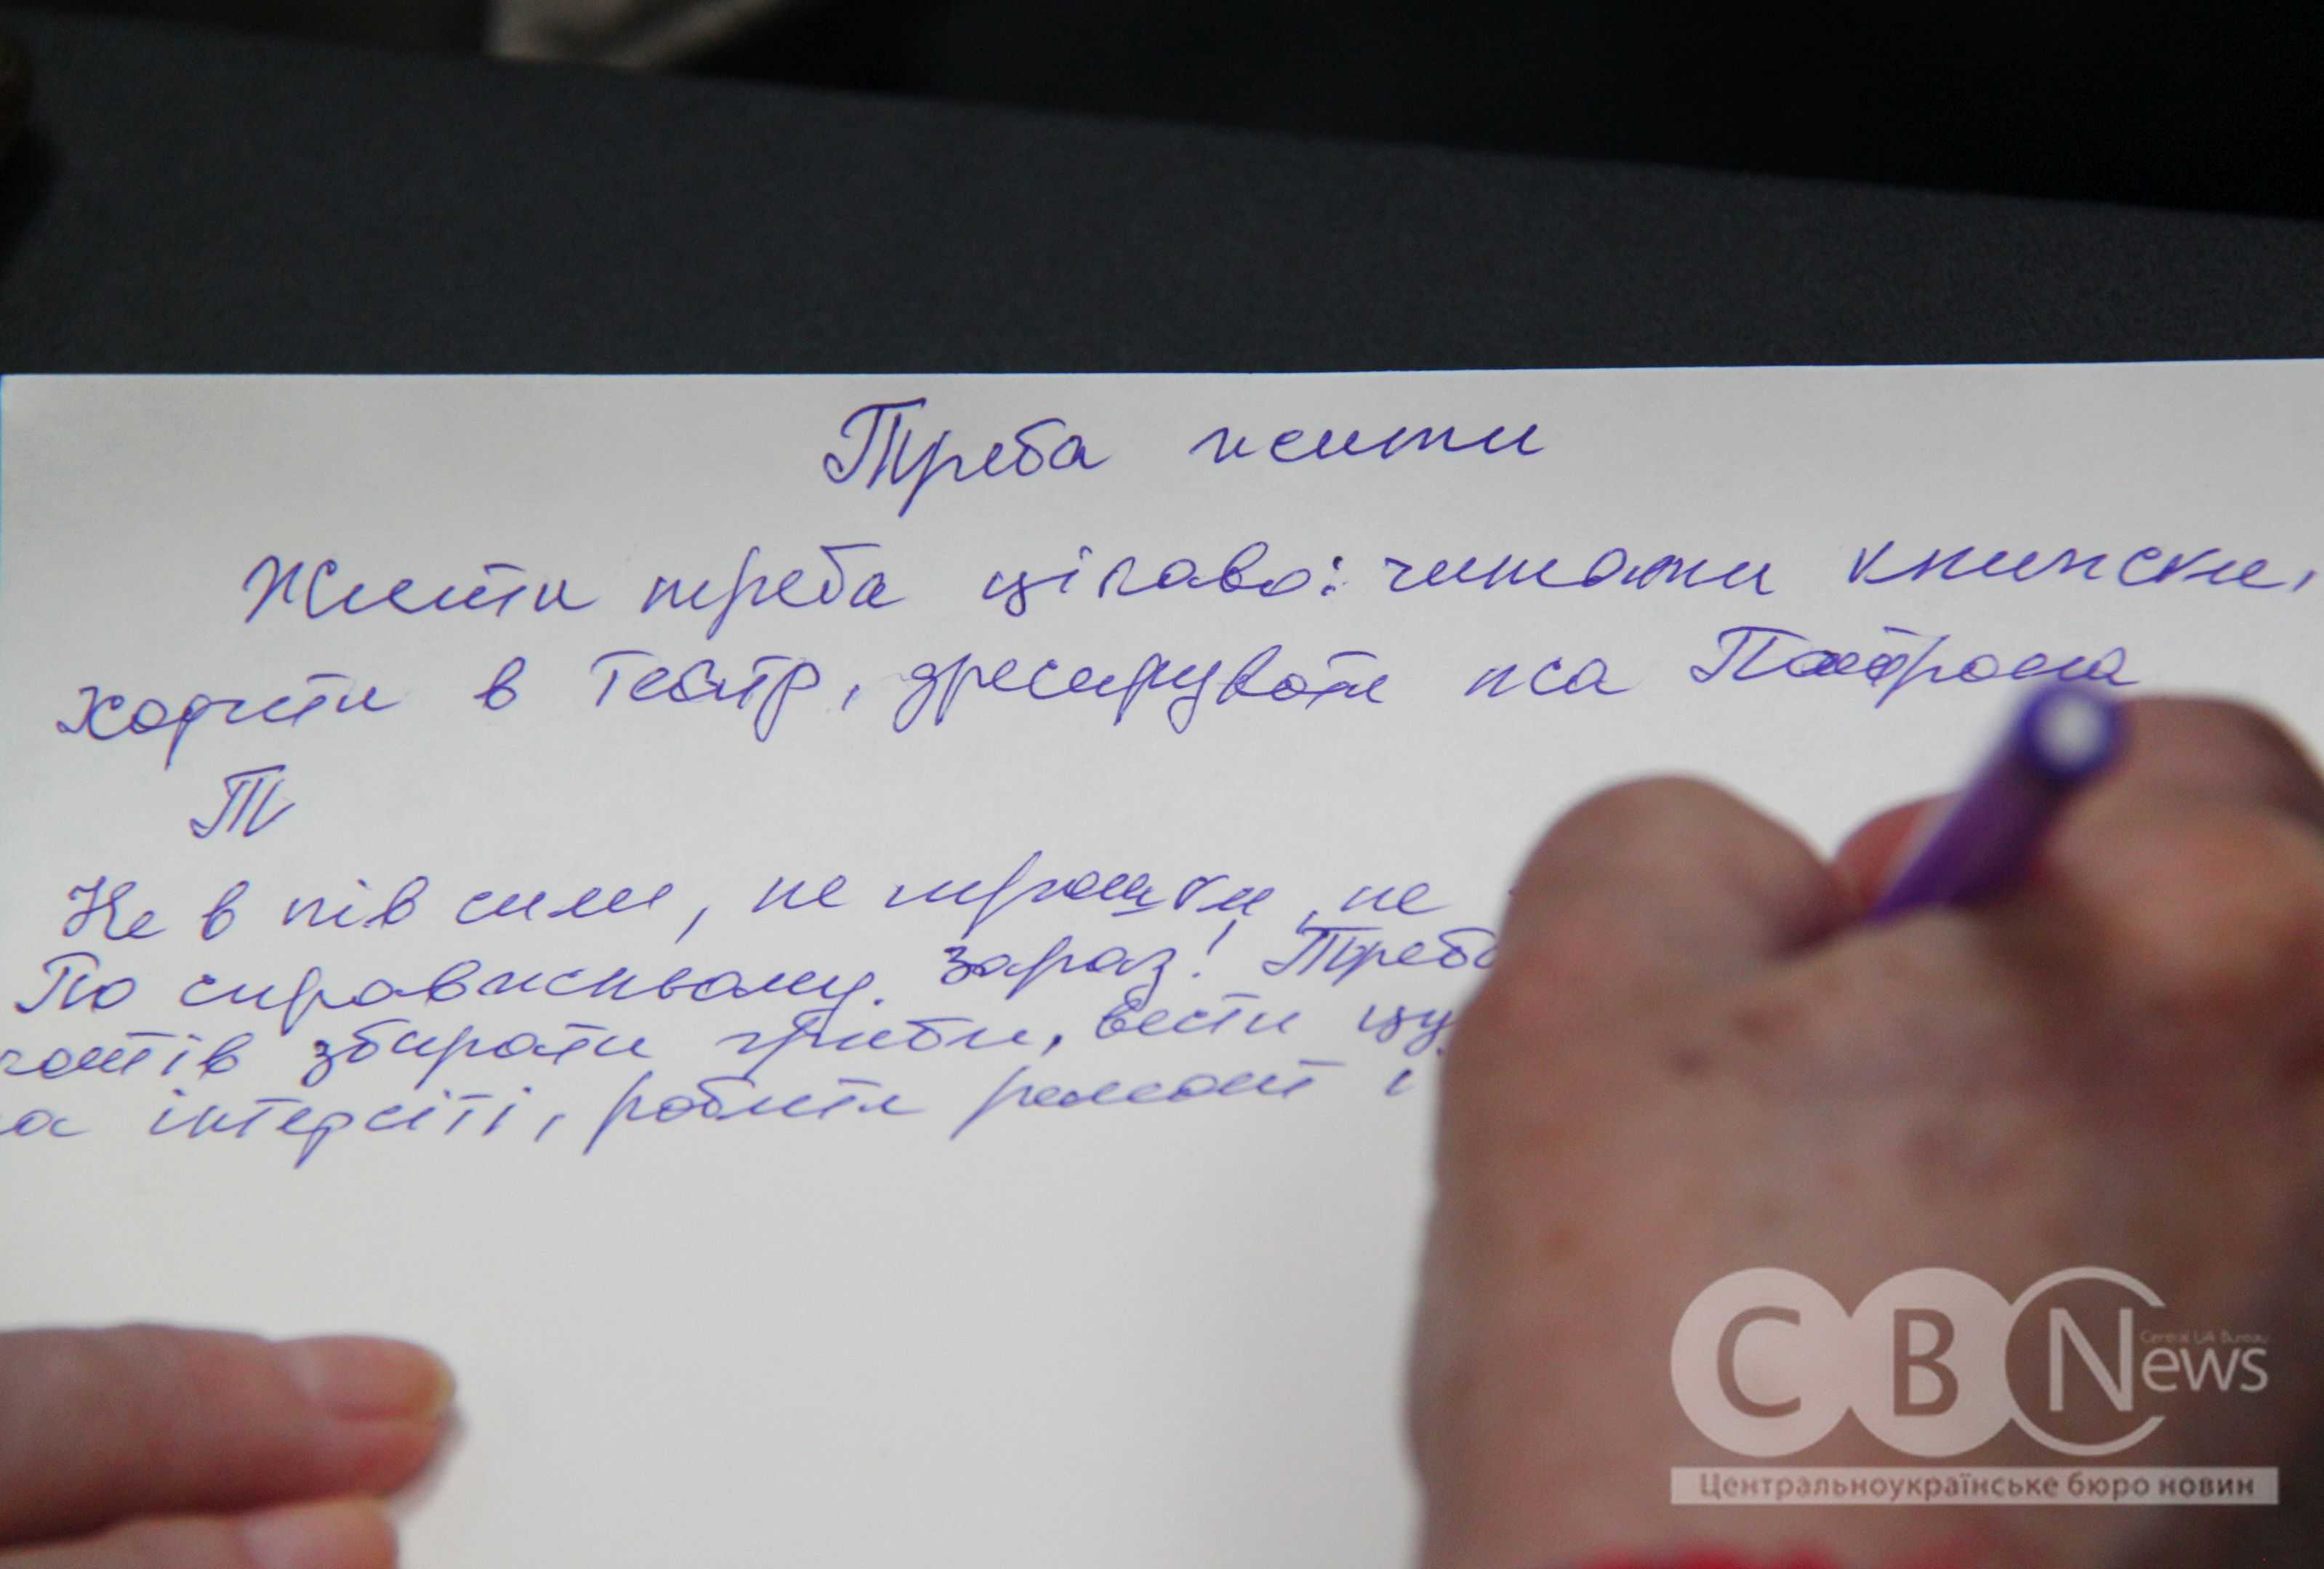 Треба жити
Жити треба цікаво: читати книжки,
ходити в театр, дресирувати пса Патрона
Т
Не в пів сили, не трошки, не
По справжньому. Зараз! Треба
збирати гриби, вести
інтерсіті, робити ремонт і
CBNews
Central UA Bureau
Центральноукраїнське бюро новин